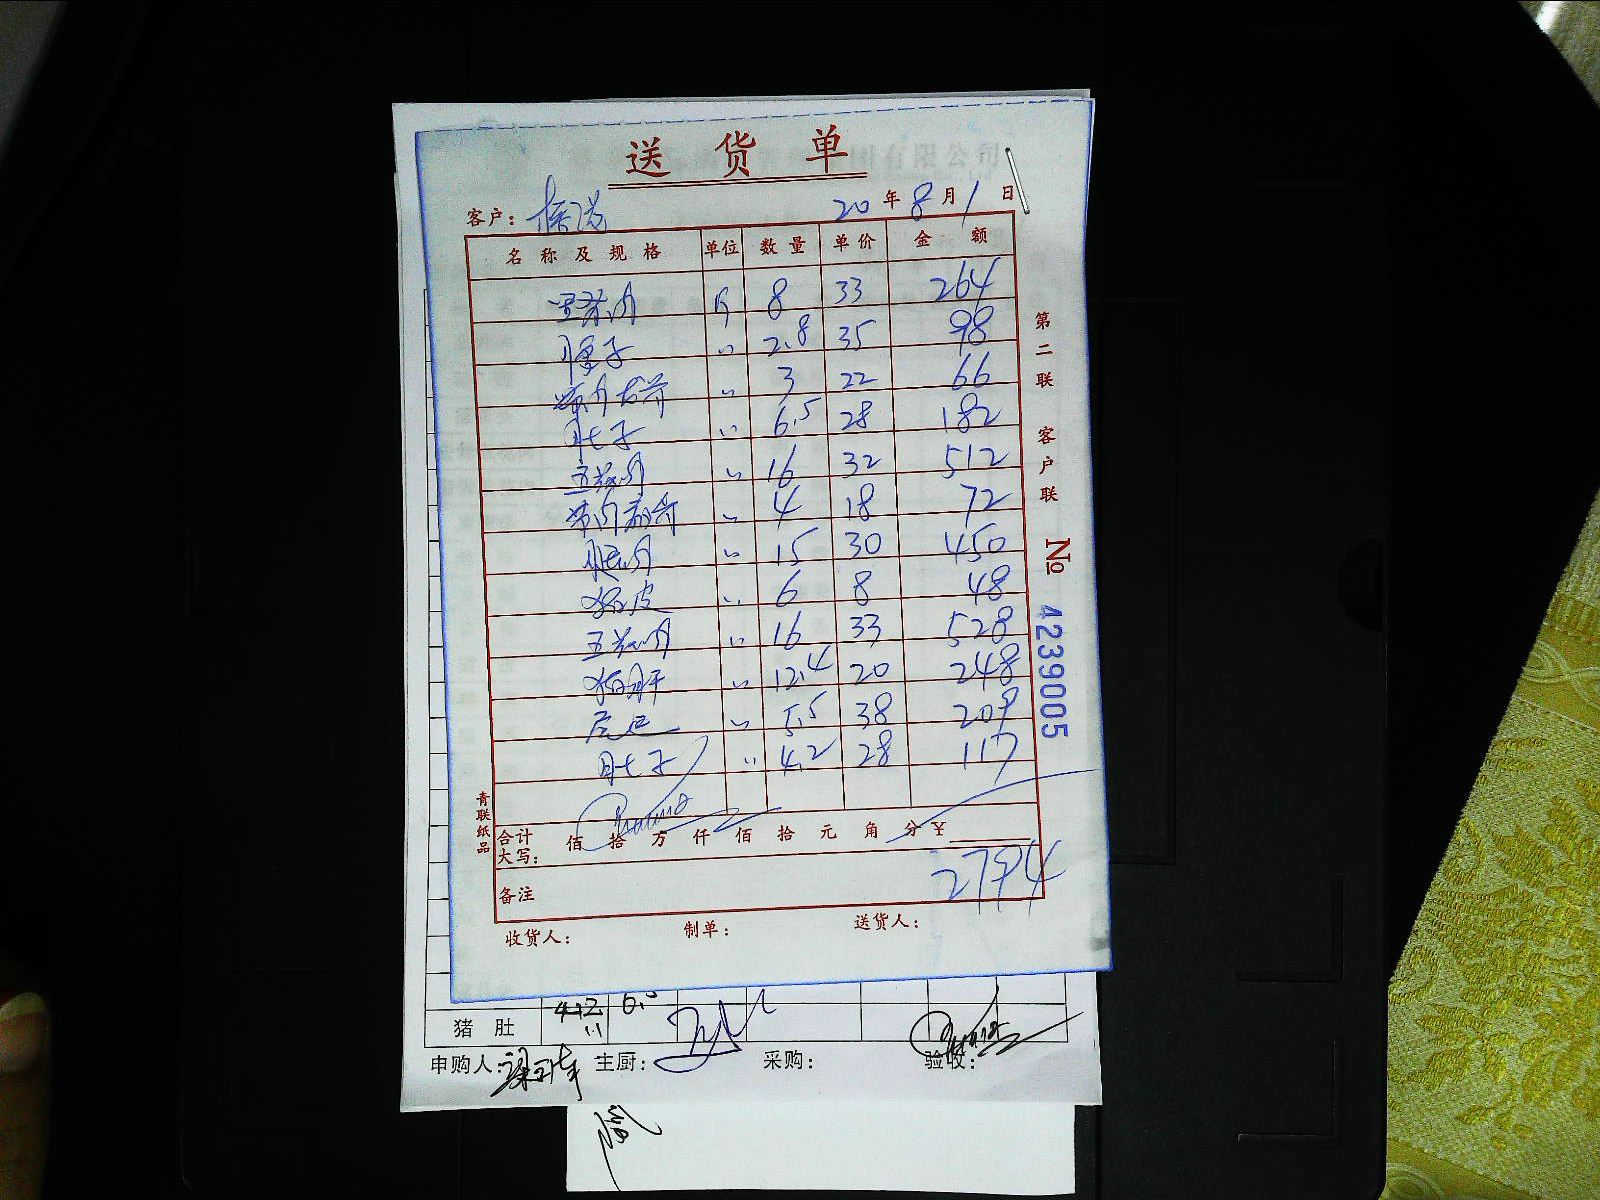 送货单
客户：
20年8月1日
名称及规格 单位 数量 单价 金额
五花肉 斤 8 33 264
膘子 〃 2.8 35 98
〃 3 22 66
肚子 〃 6.5 28 182
五花肉 〃 16 32 512
〃 4 18 72
腿肉 〃 15 30 450
猪皮 〃 6 8 48
五花肉 〃 16 33 528
猪肝 〃 12.4 20 248
〃 5.5 38 209
肚子 〃 4.2 28 117
合计大写： 佰 拾 万 仟 佰 拾 元 角 分 ¥
2794
备注
收货人： 制单： 送货人：
第二联 客户联
№ 4239005
青联纸品
猪肚
申购人： 主厨： 采购： 验收：